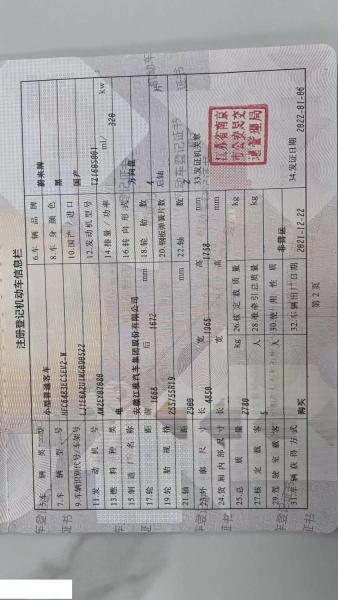 注册登记机动车信息栏
5.车辆类型 小型普通客车 6.车辆品牌 蔚来牌
7.车辆型号 HFC6483ECSEV2-W 8.车身颜色 黑
9.车辆识别代号/车架号 10.国产/进口 国产
11.发动机号 12.发动机型号 TZ160S001
13.燃料种类 电 14.排量/功率 ml/ 320 kw
15.制造厂名称 安徽江淮汽车集团股份有限公司 16.转向形式 方向盘
17.轮距 前 1668 后 1672 mm 18.轮胎数 4
19.轮胎规格 255/55R19 20.钢板弹簧片数 后轴
21.轴距 2900 mm 22.轴数 2
23.外廓尺寸 长 4850 宽 1965 高 1758 mm
24.货厢内部尺寸 长 宽 高 mm
25.总质量 2780 kg 26.核定载质量 kg
27.核定载客 5 人 28.准牵引总质量 kg
29.驾驶室载客 人 30.使用性质 非营运
31.车辆获得方式 购买 32.车辆出厂日期 2021-12-22
33.发证机关章
江苏省南京市公安局交通管理局
34.发证日期 2022-01-06
第 2 页